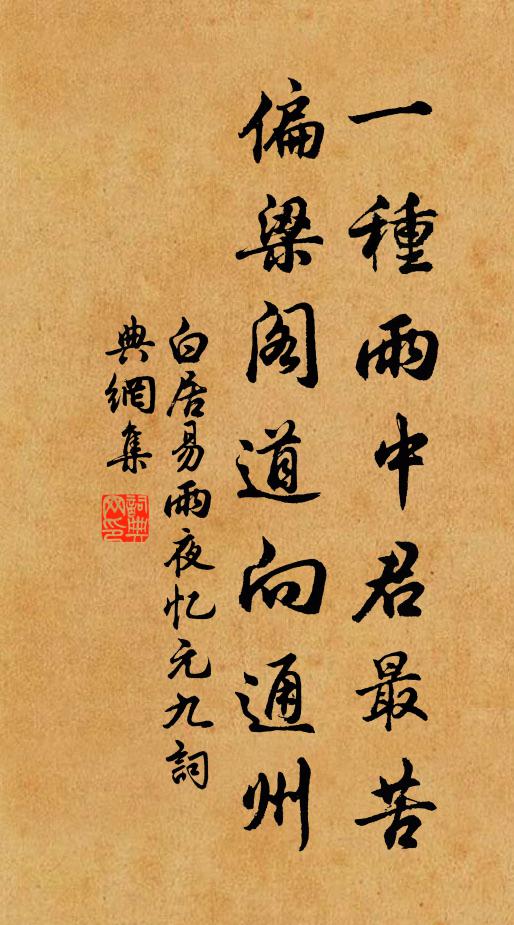 一種雨中君最苦
偏梁阁道向通州
白居易雨夜忆元九詞
典網集
詞典網印